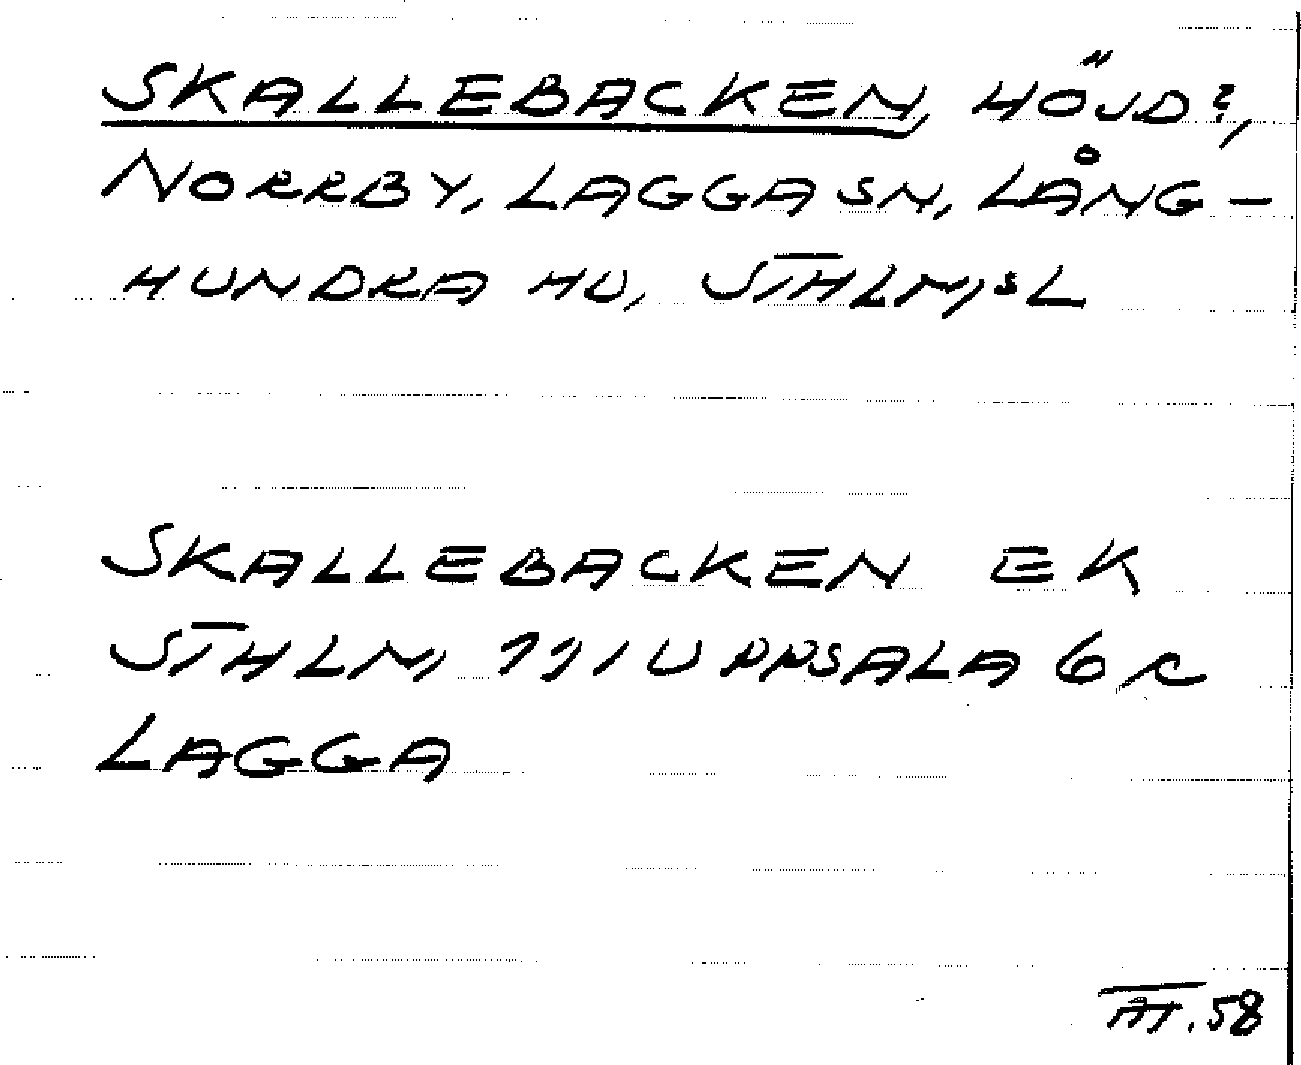 SKALLEBACKEN, HÖJD?,
NORRBY, LAGGA SN, LÅNG-
HUNDRA HD, STHLM,S L
SKALLEBACKEN EK
STHLM, 111 UPPSALA 6 c
LAGGA
.58